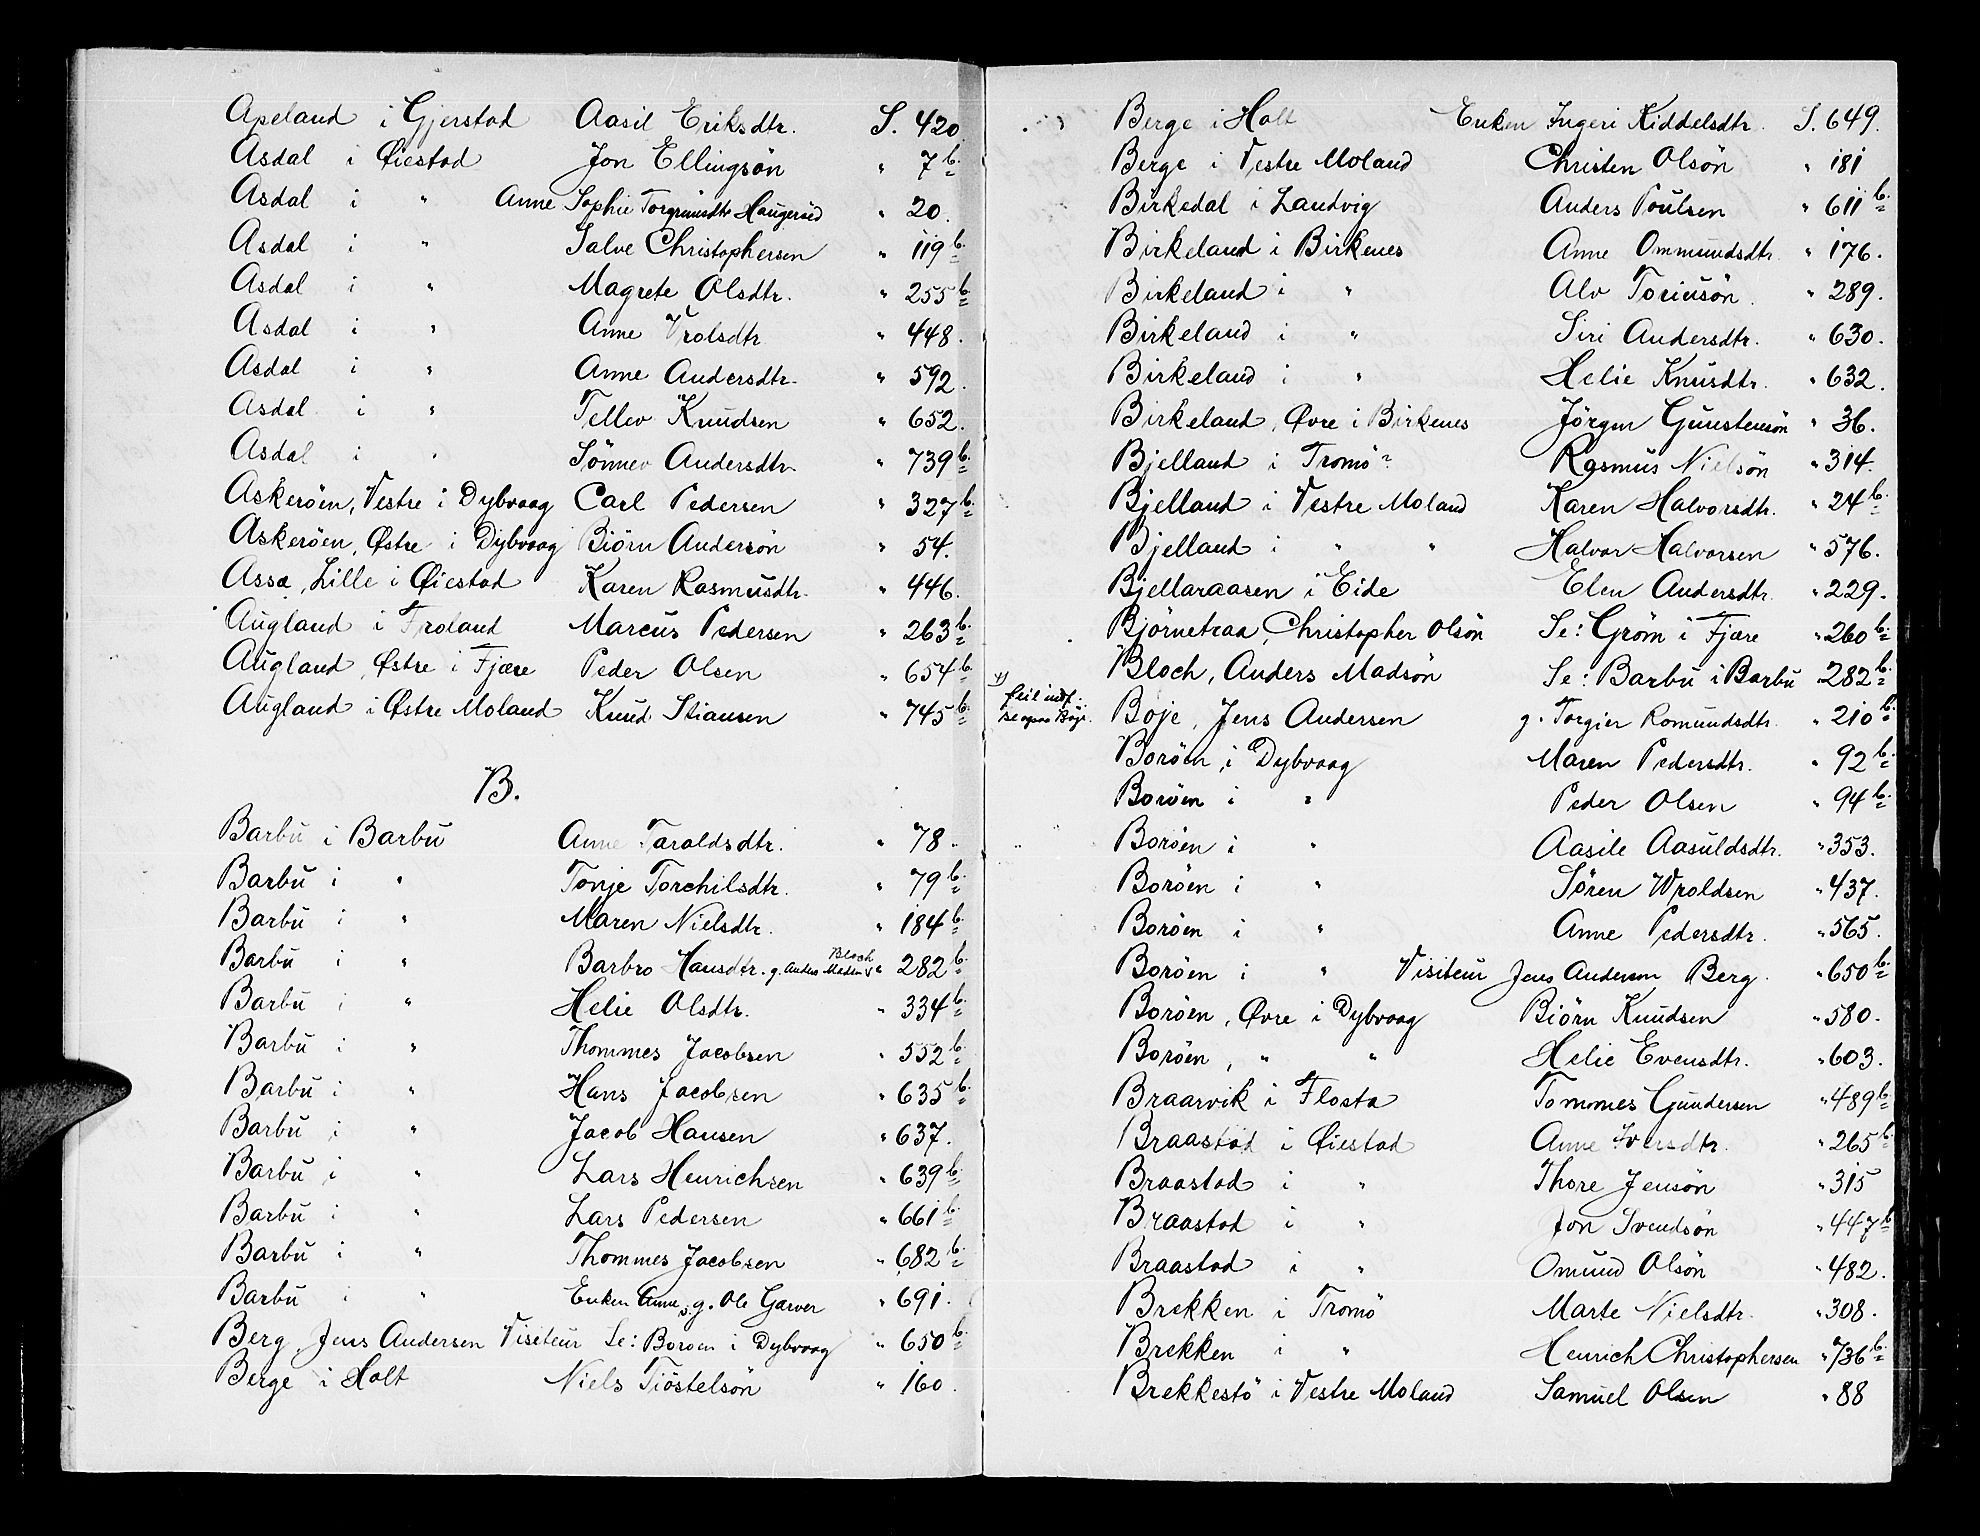 Apeland i Gjerstad Aasil Eriksdtr. S. 420
Asdal i Øiestad Jon Ellingsön " 7 b.
Asdal i " Anne Sophie Torgrimsdtr Haugerud " 20.
Asdal i " Salve Christophersen " 119 b.
Asdal i " Magrete Olsdtr. " 255 b.
Asdal i " Anne Vrolsdtr " 448.
Asdal i " Anne Andersdtr. " 592.
Asdal i " Tellev Knudsen " 652.
Asdal i " Sönnev Andersdtr. " 739 b.
Askeröen, Vestre i Dybvaag Carl Pedersen " 327 b.
Askeröen, Østre i Dybvaag Biörn Andersön " 54.
Assæ, Lille i Øiestad Karen Rasmusdtr. " 446.
Augland i Froland Marcus Pedersen " 263 b.
Augland, Østre i Fjære Peder Olsen " 654 b.
Augland i Østre Moland Knud Stiansen " 745 b.
B.
Barbu i Barbu Anne Taraldsdtr. " 78.
Barbu i " Tonje Torchilsdtr. " 79 b.
Barbu i " Maren Nielsdtr. " 184 b.
Barbu i " Barbro Hansdtr. g. Anders Madsen Bloch " 282 b.
Barbu i " Helie Olsdtr. " 334 b.
Barbu i " Thommes Jacobsen " 552 b.
Barbu i " Hans Jacobsen " 635 b.
Barbu i " Jacob Hansen " 637.
Barbu i " Lars Henrichsen " 639 b.
Barbu i " Lars Pedersen " 661 b.
Barbu i " Thommes Jacobsen " 682 b.
Barbu i " Enken Anne, g. Ole Garver " 691.
Berg, Jens Andersen Visiteur Se: Boröen i Dybvaag " 650 b.
Berge i Holt Niels Tiöstelsön " 160.
Berge i Holt Enken Ingeri Kiddelsdtr. S. 649.
Berge i Vestre Moland Christen Olsön " 181
Birkedal i Landvig Anders Poulsen " 611 b.
Birkeland i Birkenes Anne Ommundsdtr. " 176.
Birkeland i " Alv Toriusön. " 289.
Birkeland i " Siri Andersdtr. " 630.
Birkeland i " Helie Knusdtr. " 632.
Birkeland, Øvre i Birkenes Jörgen Gunstensön " 36.
Bjelland i Tromö? Rasmus Nielsön " 314.
Bjelland i Vestre Moland Karen Halvorsdtr. " 24 b.
Bjelland i " " Halvor Halvorsen " 576.
Bjellaraasen i Eide Elen Andersdtr. " 229.
Björnetraa, Christopher Olsön Se: Gröm i Fjære " 260 b.
Bloch, Anders Madsön Se: Barbu i Barbu 282 b.
feil indf. Boje, Jens Andersen g. Torgier Romundsdtr. " 210 b.
Boröen i Dybvaag Maren Pedersdtr. " 92 b.
Boröen i " Peder Olsen " 94 b.
Boröen i " Aasile Aasuldsdtr. " 353.
Boröen i " Sören Wroldsen " 437.
Boröen i " Anne Pedersdtr. " 565.
Boröen i " Visiteur Jens Andersen Berg. " 650 b.
Boröen, Øvre i Dybvaag Biörn Knudsen " 580.
Boröen, " " Helie Evensdtr. " 603.
Braarvik i Flosta Tommes Gundersen " 489 b.
Braastad i Øiestad Anne Iversdtr. " 265 b.
Braastad i " Thore Jensön " 315
Braastad i " Jon Svendsön " 447 b.
Braastad i " Omund Olsön " 482.
Brekken i Tromö Marte Nielsdtr. " 308.
Brekken i " Henrich Christophersen " 736 b.
Brekkestö i Vestre Moland Samuel Olsen " 88